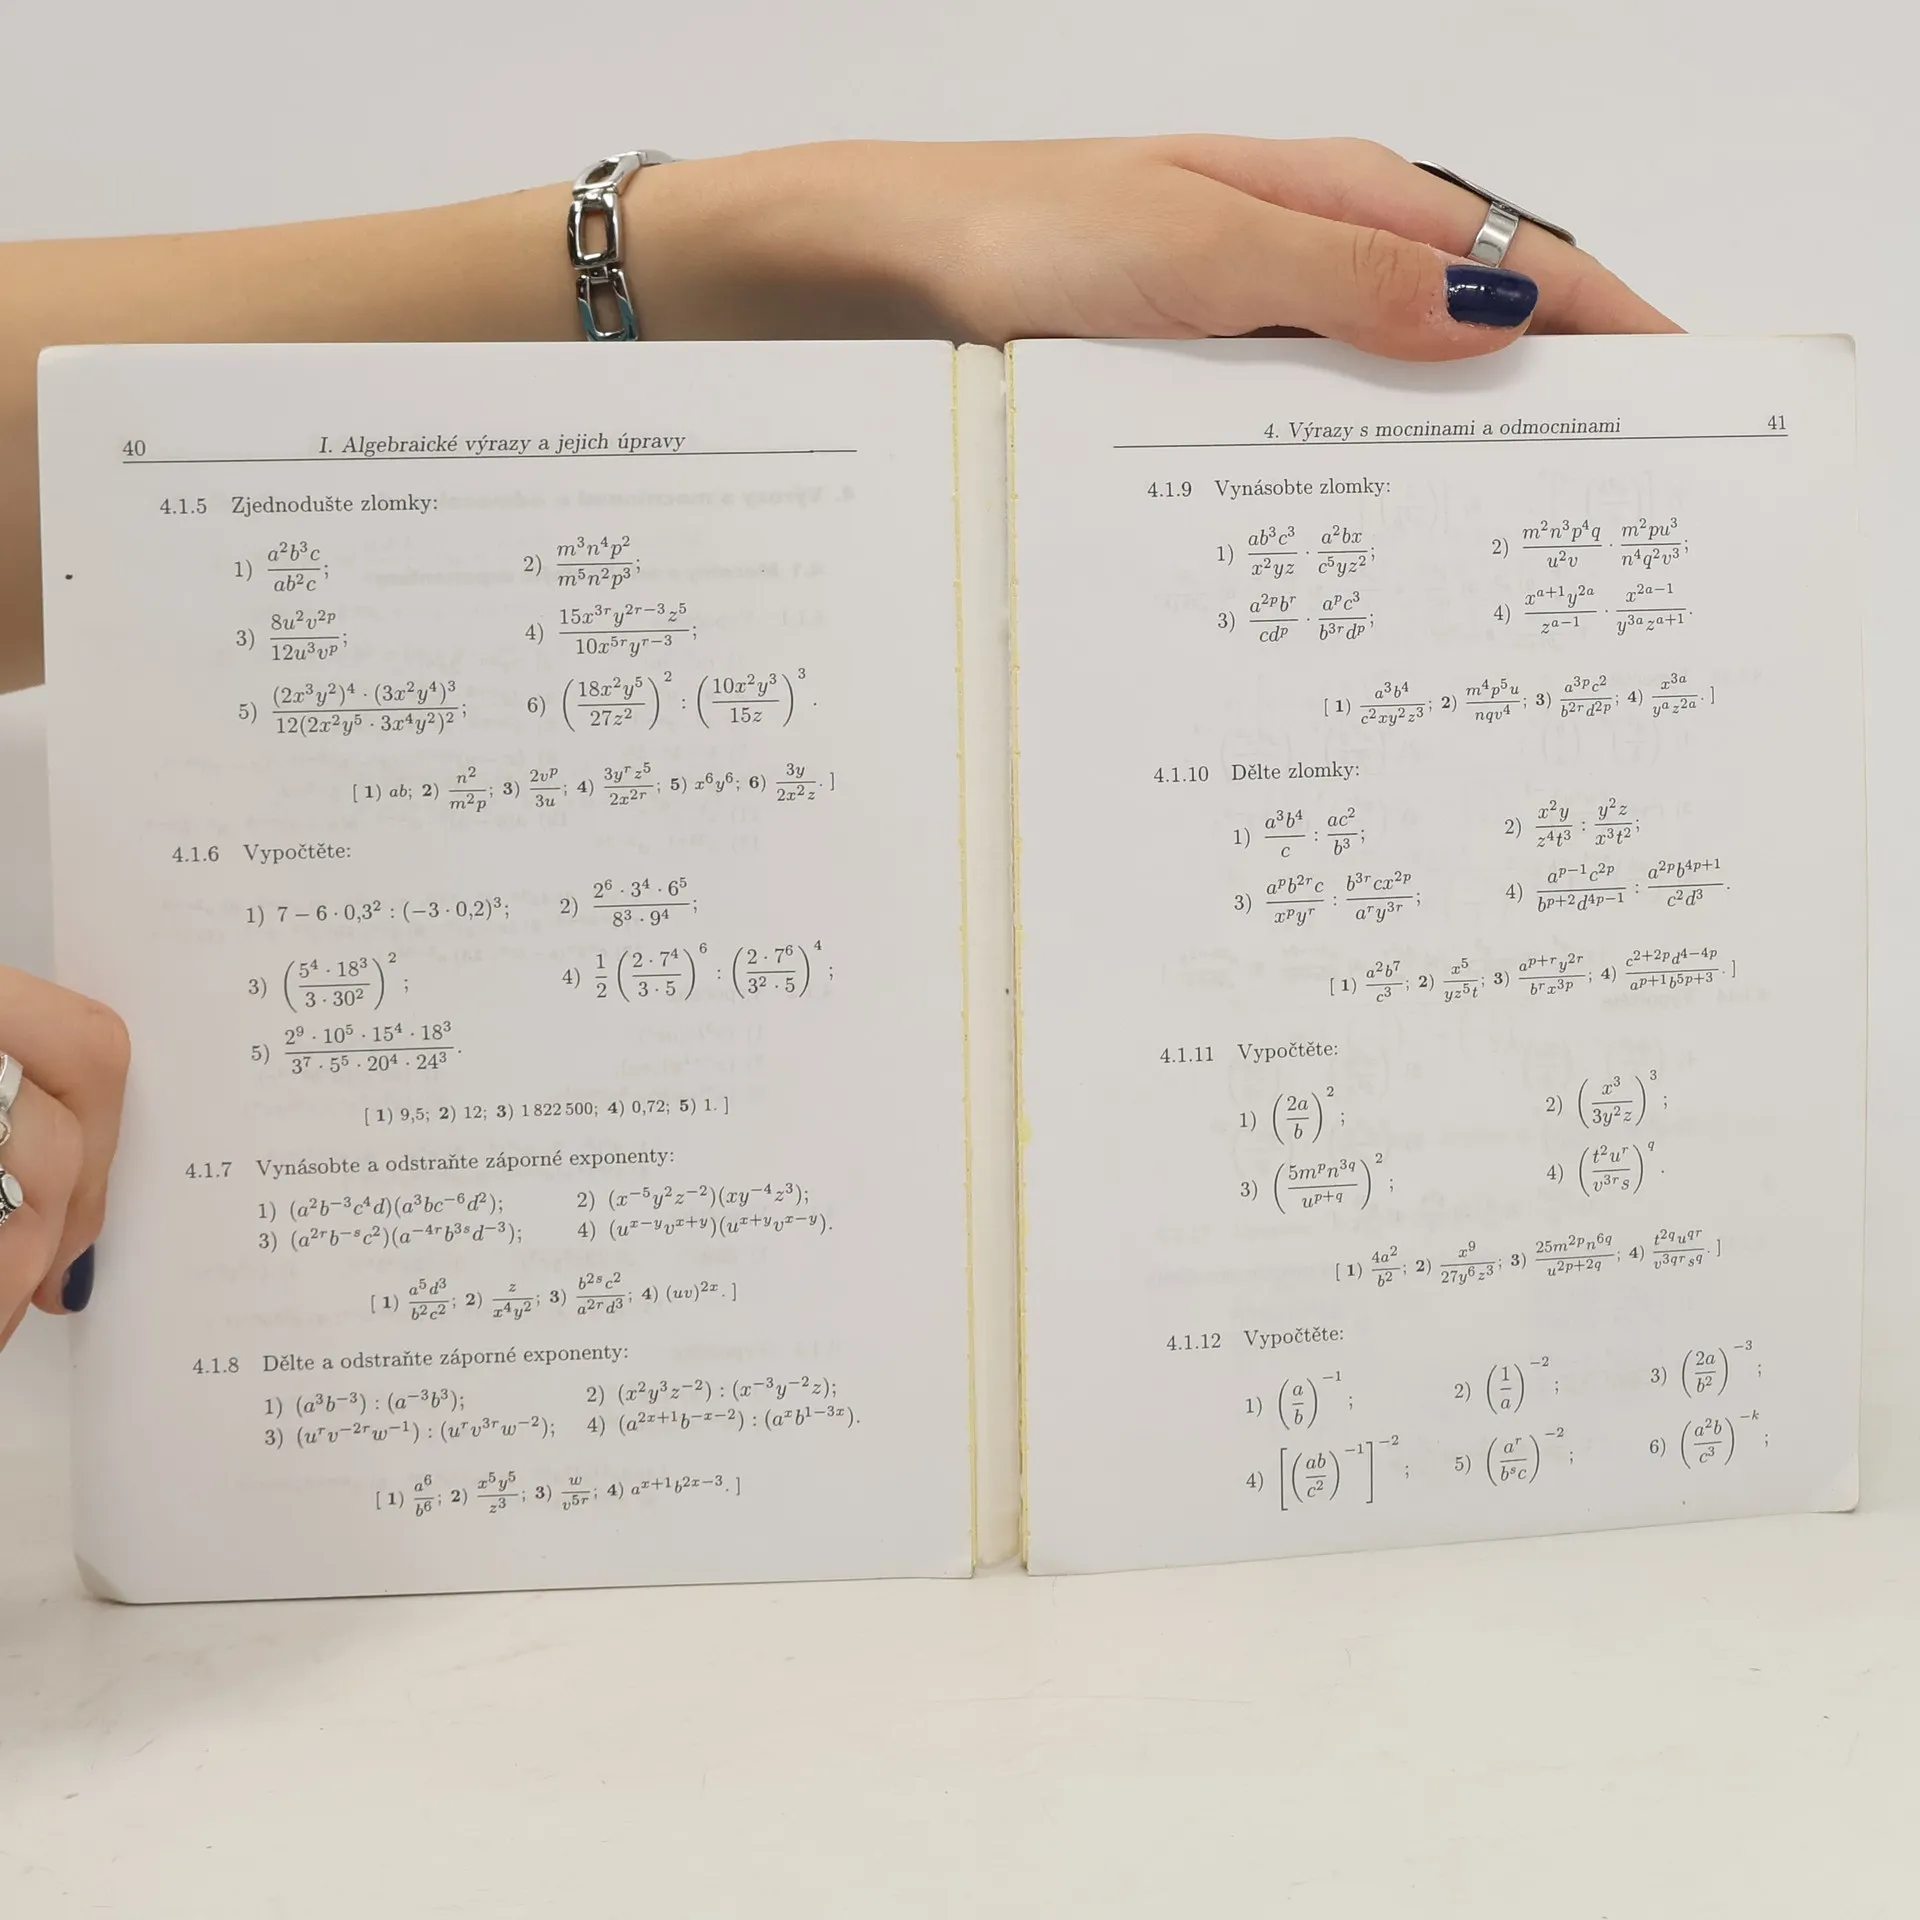 40 I. Algebraické výrazy a jejich úpravy
4.1.5 Zjednodušte zlomky:
1) \frac{a^2b^3c}{ab^2c}; 2) \frac{m^3n^4p^2}{m^5n^2p^3};
3) \frac{8u^2v^{2p}}{12u^3v^p}; 4) \frac{15x^{3r}y^{2r-3}z^5}{10x^{5r}y^{r-3}};
5) \frac{(2x^3y^2)^4 · (3x^2y^4)^3}{12(2x^2y^5 · 3x^4y^2)^2}; 6) \left(\frac{18x^2y^5}{27z^2}\right)^2 : \left(\frac{10x^2y^3}{15z}\right)^3.
[ 1) ab; 2) \frac{n^2}{m^2p}; 3) \frac{2v^p}{3u}; 4) \frac{3y^rz^5}{2x^{2r}}; 5) x^6y^6; 6) \frac{3y}{2x^2z}. ]
4.1.6 Vypočtěte:
1) 7 − 6 · 0,3^2 : (−3 · 0,2)^3; 2) \frac{2^6 · 3^4 · 6^5}{8^3 · 9^4};
3) \left(\frac{5^4 · 18^3}{3 · 30^2}\right)^2; 4) \frac{1}{2}\left(\frac{2 · 7^4}{3 · 5}\right)^6 : \left(\frac{2 · 7^6}{3^2 · 5}\right)^4;
5) \frac{2^9 · 10^5 · 15^4 · 18^3}{3^7 · 5^5 · 20^4 · 24^3}.
[ 1) 9,5; 2) 12; 3) 1 822 500; 4) 0,72; 5) 1. ]
4.1.7 Vynásobte a odstraňte záporné exponenty:
1) (a^2b^{-3}c^4d)(a^3bc^{-6}d^2); 2) (x^{-5}y^2z^{-2})(xy^{-4}z^3);
3) (a^{2r}b^{-s}c^2)(a^{-4r}b^{3s}d^{-3}); 4) (u^{x-y}v^{x+y})(u^{x+y}v^{x-y}).
[ 1) \frac{a^5d^3}{b^2c^2}; 2) \frac{z}{x^4y^2}; 3) \frac{b^{2s}c^2}{a^{2r}d^3}; 4) (uv)^{2x}. ]
4.1.8 Dělte a odstraňte záporné exponenty:
1) (a^3b^{-3}) : (a^{-3}b^3); 2) (x^2y^3z^{-2}) : (x^{-3}y^{-2}z);
3) (u^rv^{-2r}w^{-1}) : (u^rv^{3r}w^{-2}); 4) (a^{2x+1}b^{-x-2}) : (a^xb^{1-3x}).
[ 1) \frac{a^6}{b^6}; 2) \frac{x^5y^5}{z^3}; 3) \frac{w}{v^{5r}}; 4) a^{x+1}b^{2x-3}. ]
4. Výrazy s mocninami a odmocninami 41
4.1.9 Vynásobte zlomky:
1) \frac{ab^3c^3}{x^2yz} · \frac{a^2bx}{c^5yz^2}; 2) \frac{m^2n^3p^4q}{u^2v} · \frac{m^2pu^3}{n^4q^2v^3};
3) \frac{a^{2p}b^r}{cd^p} · \frac{a^pc^3}{b^{3r}d^p}; 4) \frac{x^{a+1}y^{2a}}{z^{a-1}} · \frac{x^{2a-1}}{y^{3a}z^{a+1}}.
[ 1) \frac{a^3b^4}{c^2xy^2z^3}; 2) \frac{m^4p^5u}{nqv^4}; 3) \frac{a^{3p}c^2}{b^{2r}d^{2p}}; 4) \frac{x^{3a}}{y^az^{2a}}. ]
4.1.10 Dělte zlomky:
1) \frac{a^3b^4}{c} : \frac{ac^2}{b^3}; 2) \frac{x^2y}{z^4t^3} : \frac{y^2z}{x^3t^2};
3) \frac{a^pb^{2r}c}{x^py^r} : \frac{b^{3r}cx^{2p}}{a^ry^{3r}}; 4) \frac{a^{p-1}c^{2p}}{b^{p+2}d^{4p-1}} : \frac{a^{2p}b^{4p+1}}{c^2d^3}.
[ 1) \frac{a^2b^7}{c^3}; 2) \frac{x^5}{yz^5t}; 3) \frac{a^{p+r}y^{2r}}{b^rx^{3p}}; 4) \frac{c^{2+2p}d^{4-4p}}{a^{p+1}b^{5p+3}}. ]
4.1.11 Vypočtěte:
1) \left(\frac{2a}{b}\right)^2; 2) \left(\frac{x^3}{3y^2z}\right)^3;
3) \left(\frac{5m^pn^{3q}}{u^{p+q}}\right)^2; 4) \left(\frac{t^2u^r}{v^{3r}s}\right)^q.
[ 1) \frac{4a^2}{b^2}; 2) \frac{x^9}{27y^6z^3}; 3) \frac{25m^{2p}n^{6q}}{u^{2p+2q}}; 4) \frac{t^{2q}u^{qr}}{v^{3qr}s^q}. ]
4.1.12 Vypočtěte:
1) \left(\frac{a}{b}\right)^{-1}; 2) \left(\frac{1}{a}\right)^{-2}; 3) \left(\frac{2a}{b^2}\right)^{-3};
4) \left[\left(\frac{ab}{c^2}\right)^{-1}\right]^{-2}; 5) \left(\frac{a^r}{b^sc}\right)^{-2}; 6) \left(\frac{a^2b}{c^3}\right)^{-k};